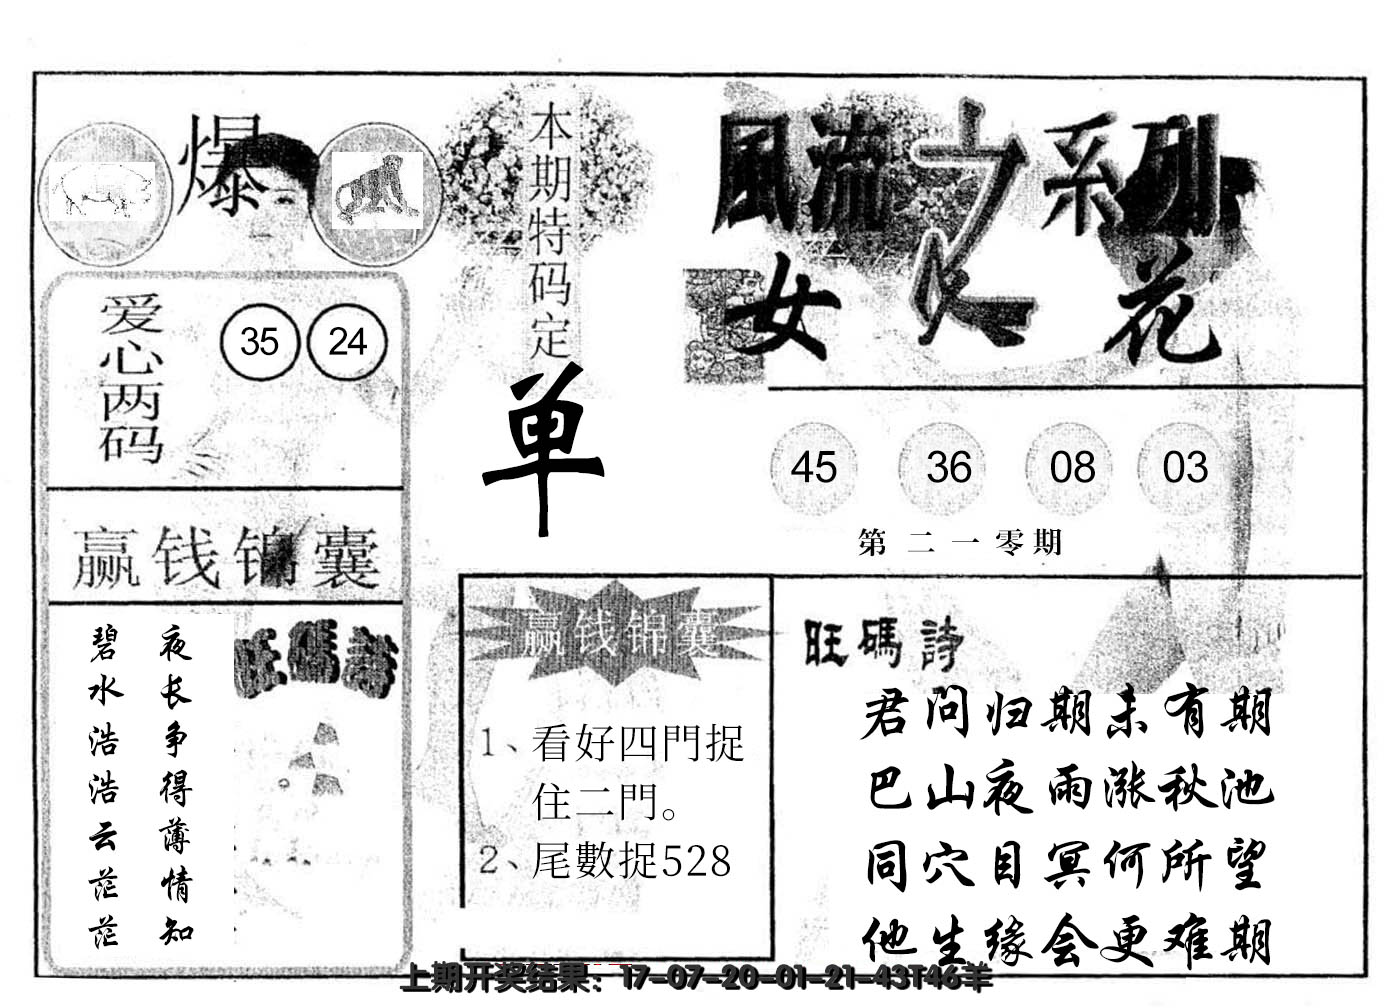 爆
本期特码定
单
風流之系列
女人花
爱心两码
35 24
45 36 08 03
第二一零期
赢钱锦囊
夜长争得薄情知
碧水浩浩云茫茫
旺碼詩
赢钱锦囊
1、看好四門捉
住二門。
2、尾數捉528
旺碼詩
君问归期未有期
巴山夜雨涨秋池
同穴目冥何所望
他生缘会更难期
上期开奖结果：17-07-20-01-21-43T46羊